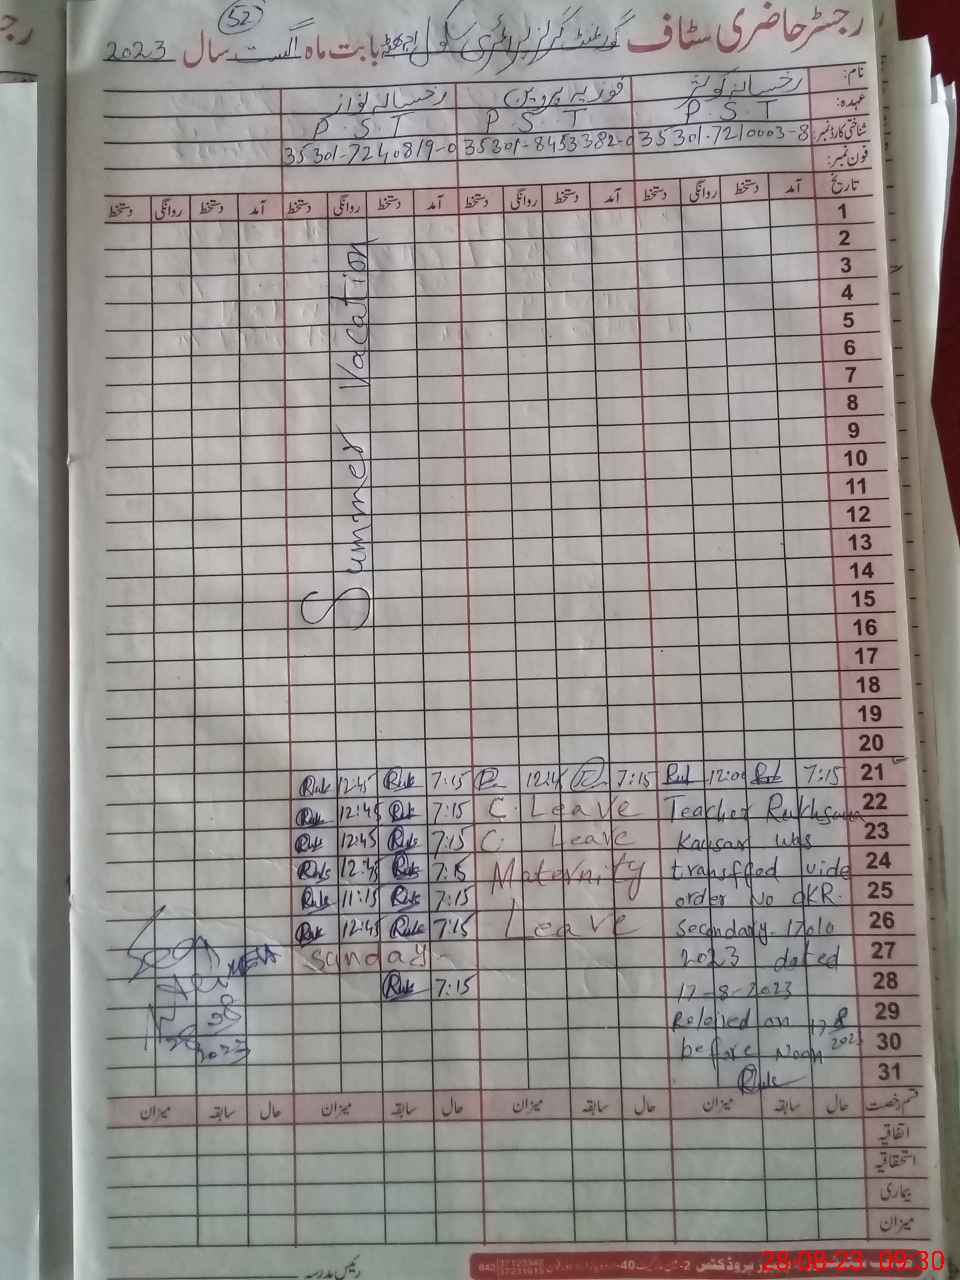 52
رجسٹر حاضری سٹاف گورنمنٹ گرلز پرائمری سکول بابت ماہ اگست سال 2023
نام: رخسانہ کوثر فوزیہ پروین رخسانہ نواز
عہدہ: P.S.T P.S.T P.S.T
شناختی کارڈ نمبر: 35301-7210003-8 35301-8453382-0 35301-7240819-0
فون نمبر:
تاریخ آمد دستخط روانگی دستخط آمد دستخط روانگی دستخط آمد دستخط روانگی دستخط آمد دستخط روانگی دستخط
1
2
3
4
5
6
7
8
9
10
11
12
13
14
15
16
17
18
19
20
Summer Vacation
21 7:15 12:00 7:15 12:45 7:15 Ruk 12:45 Ruk
22 Teacher Rukhsana C. Leave 7:15 Ruk 12:45 Ruk
23 Kausar was C. Leave 7:15 Ruk 12:45 Ruk
24 transffed vide Maternity 7:15 Ruk 12:45 Ruk
25 order No OKR. 7:15 Ruk 11:15 Ruk
26 Secondary-17010 Leave 7:15 Ruk 12:45 Ruk
27 2023 dated sunday
28 17-8-2023 7:15 Ruk
29 Reloived on 17-8
30 2023 before Noon
31 Ruk
Seen
MEA
28
2023
قسم رخصت حال سابقہ میزان حال سابقہ میزان حال سابقہ میزان حال سابقہ میزان
اتفاقیہ
استحقاقیہ
بیماری
میزان
رئیس مدرسہ
28-08-23 09:30